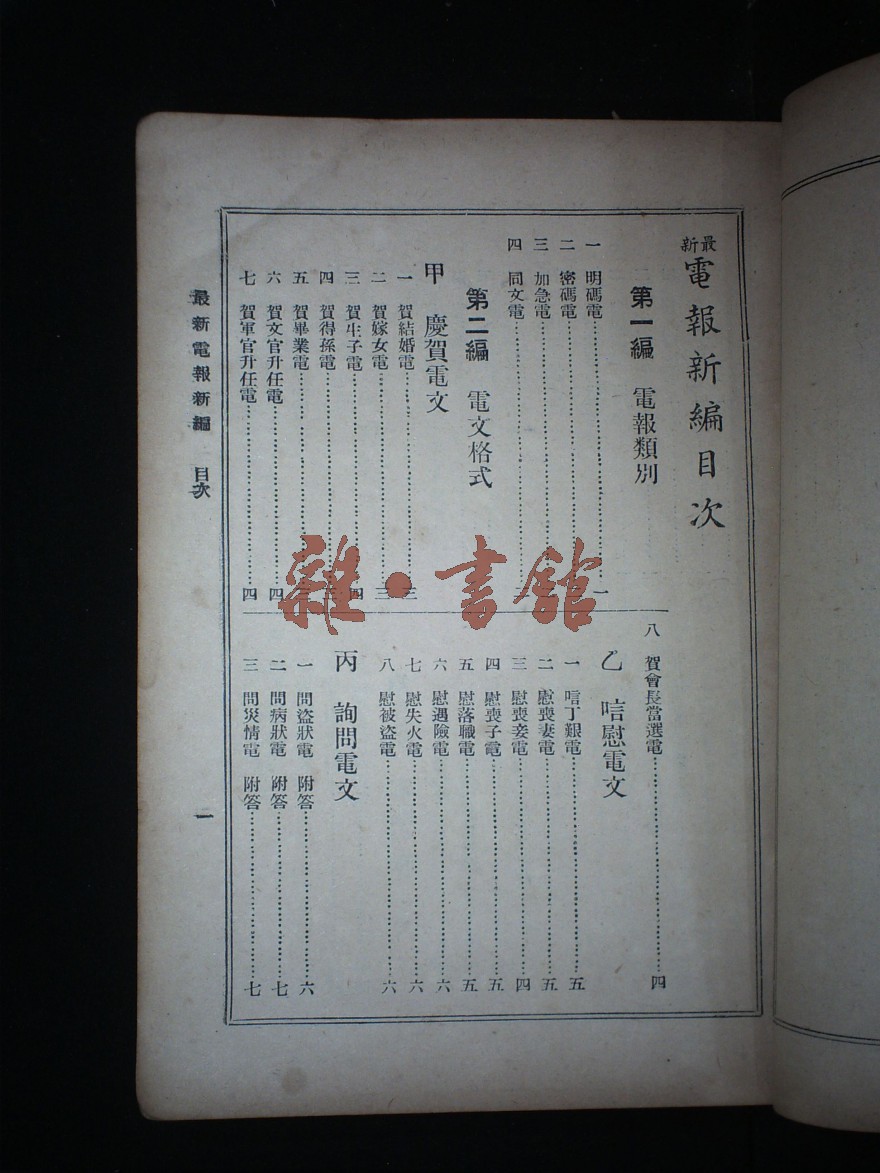 最新電報新編目次
第一編 電報類別
一 明碼電……一
二 密碼電……
三 加急電……
四 同文電……
第二編 電文格式
甲 慶賀電文
一 賀結婚電……三
二 賀嫁女電……三
三 賀生子電……四
四 賀得孫電……
五 賀畢業電……
六 賀文官升任電……四
七 賀軍官升任電……四
八 賀會長當選電……四
乙 唁慰電文
一 唁丁艱電……五
二 慰喪妻電……五
三 慰喪妾電……四
四 慰喪子電……五
五 慰落職電……五
六 慰遇險電……六
七 慰失火電……六
八 慰被盜電……六
丙 詢問電文
一 問盜狀電 附答……六
二 問病狀電 附答……七
三 問災情電 附答……七
最新電報新編 目次
一
雜·書館